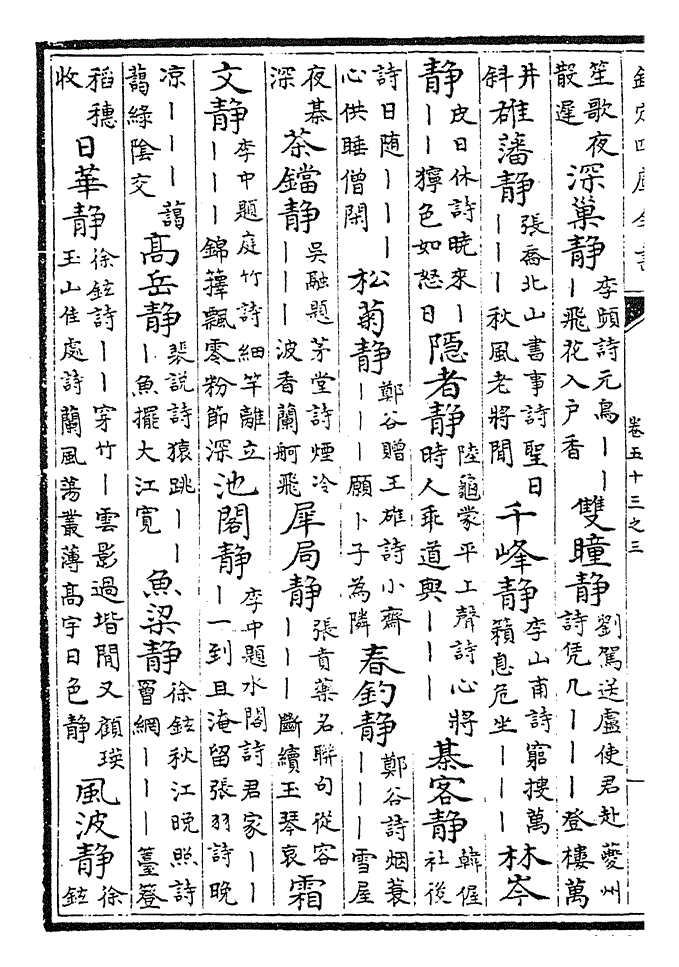 欽定四庫全書 卷五十三之三
笙歌夜散遲 深巢静 李頻詩元鳥丨丨丨飛花入户香 雙瞳静 劉駕送盧使君赴夔州詩凭几丨丨丨登樓萬
井斜 碓藩静 張喬北山書事詩聖日丨丨丨秋風老將閒 千峰静 李山甫詩窮搜萬籟息危坐丨丨丨 林岑
静 皮日休詩曉來丨丨丨獰色如怒日 隠者静 陸龜蒙平上聲詩心將時人乖道與丨丨丨 棊客静 韓偓社後
詩日随丨丨丨心供睡僧閑 松菊静 鄭谷贈王雄詩小齋丨丨丨願卜子為隣 春釣静 鄭谷詩烟蓑丨丨丨雪屋
夜棊深 茶鐺静 吳融題茅堂詩煙冷丨丨丨波香蘭舸飛 犀局静 張賁藥名聯句從容丨丨丨斷續玉琴哀 霜
文静 李中題庭竹詩細竿離立丨丨丨錦籜飄零粉節深 池閣静 李中題水閣詩君家丨丨丨一到且淹留張羽詩晚
凉丨丨丨藹藹綠陰交 高岳静 裴説詩猿跳丨丨丨魚擺大江寛 魚梁静 徐鉉秋江晚照詩罾網丨丨丨登
稻穗收 日華静 徐鉉詩丨丨穿竹丨雲影過堦閒又顧瑛玉山佳處詩蘭風蕩叢薄高宇日色静 風波静 徐鉉